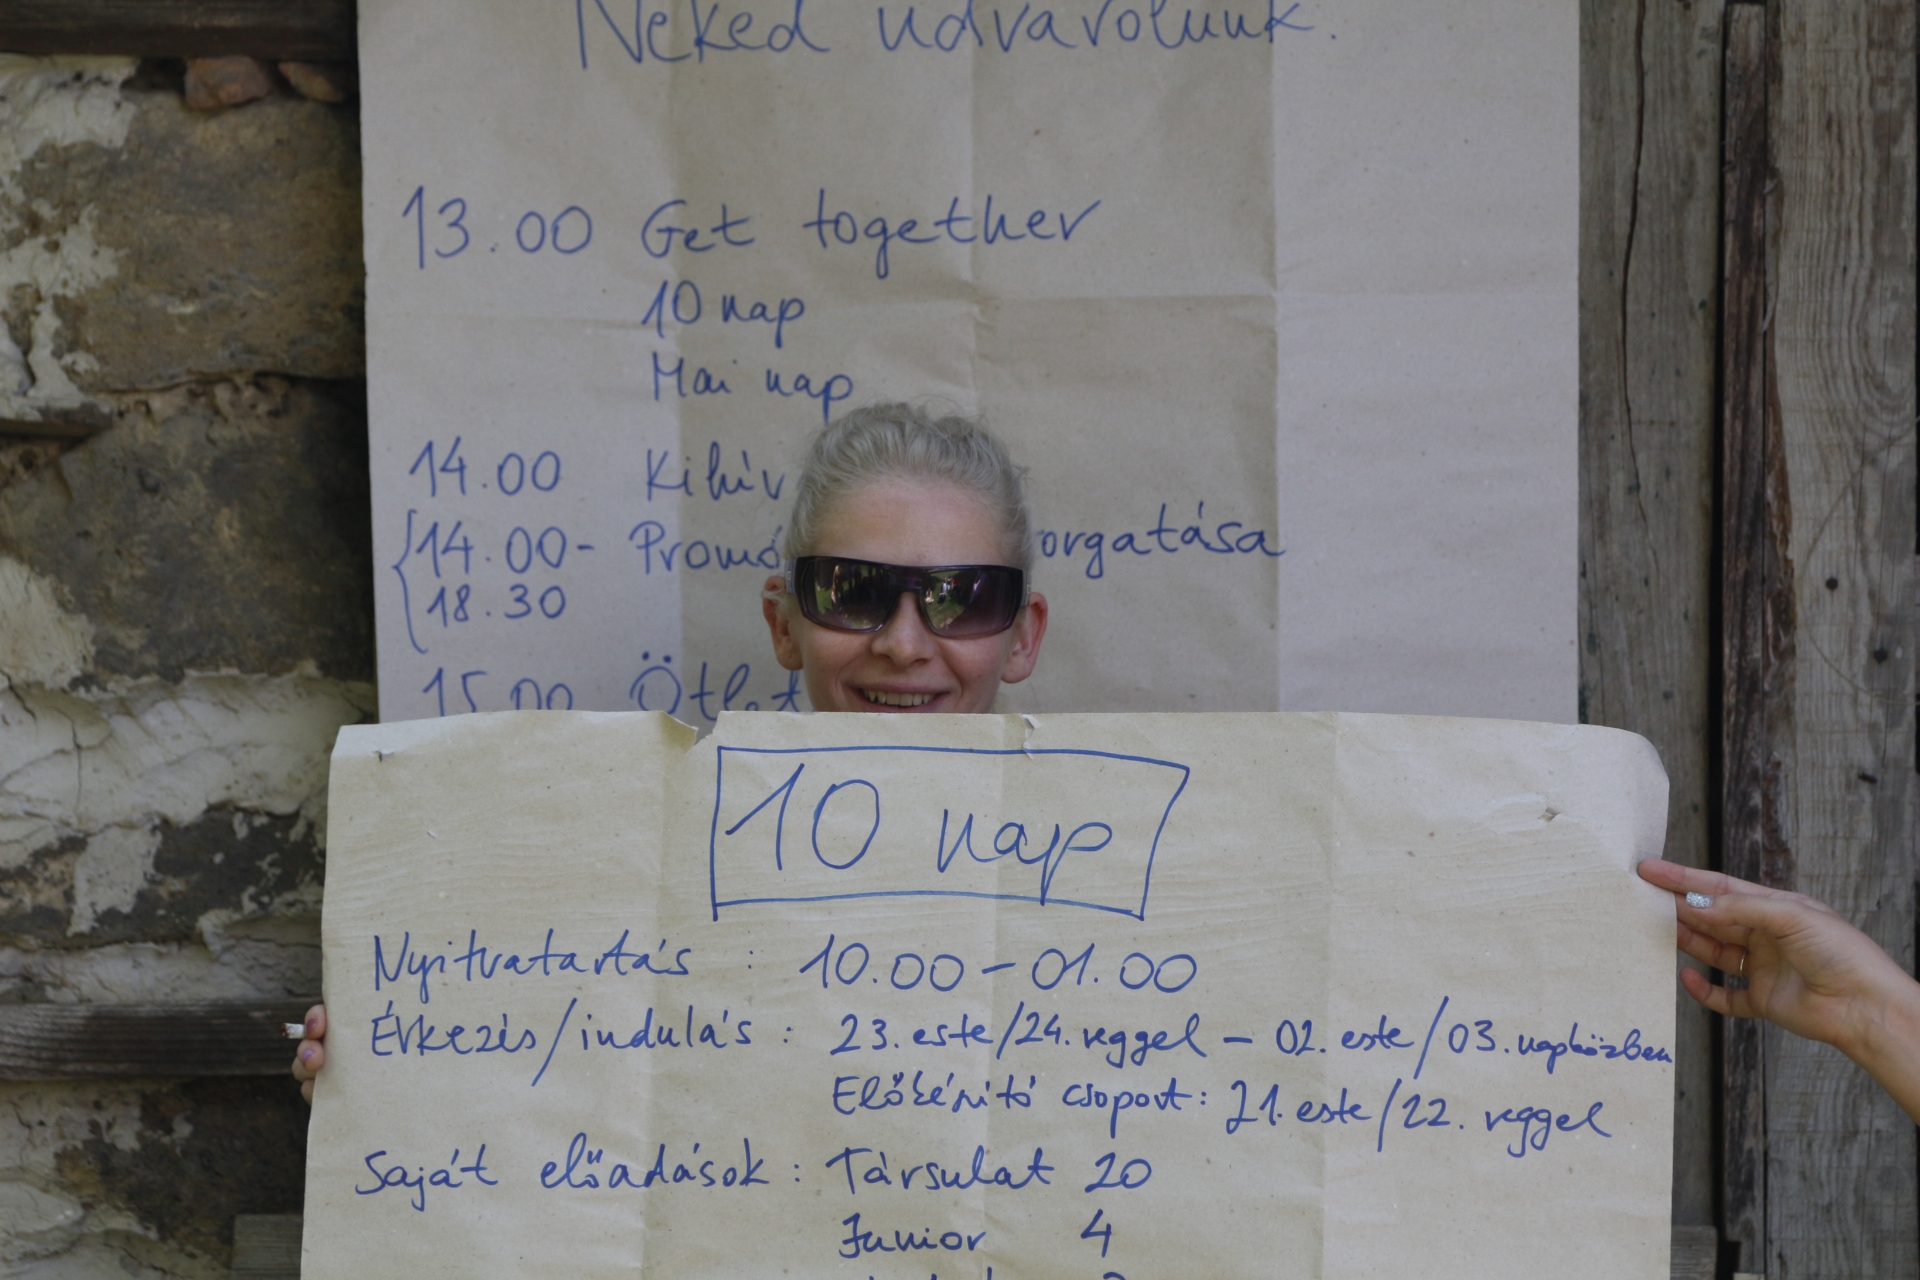 Neked udvarolunk.
13.00 Get together
10 nap
Mai nap
14.00 Kihív
14.00- Promó orgatása
18.30
15.00 Ötlet
10 nap
Nyitvatartás : 10.00 - 01.00
Érkezés/indulás : 23. este/24. reggel - 02. este/03. napközben
Előkészítő csoport: 21. este/22. reggel
Saját előadások : Társulat 20
Junior 4